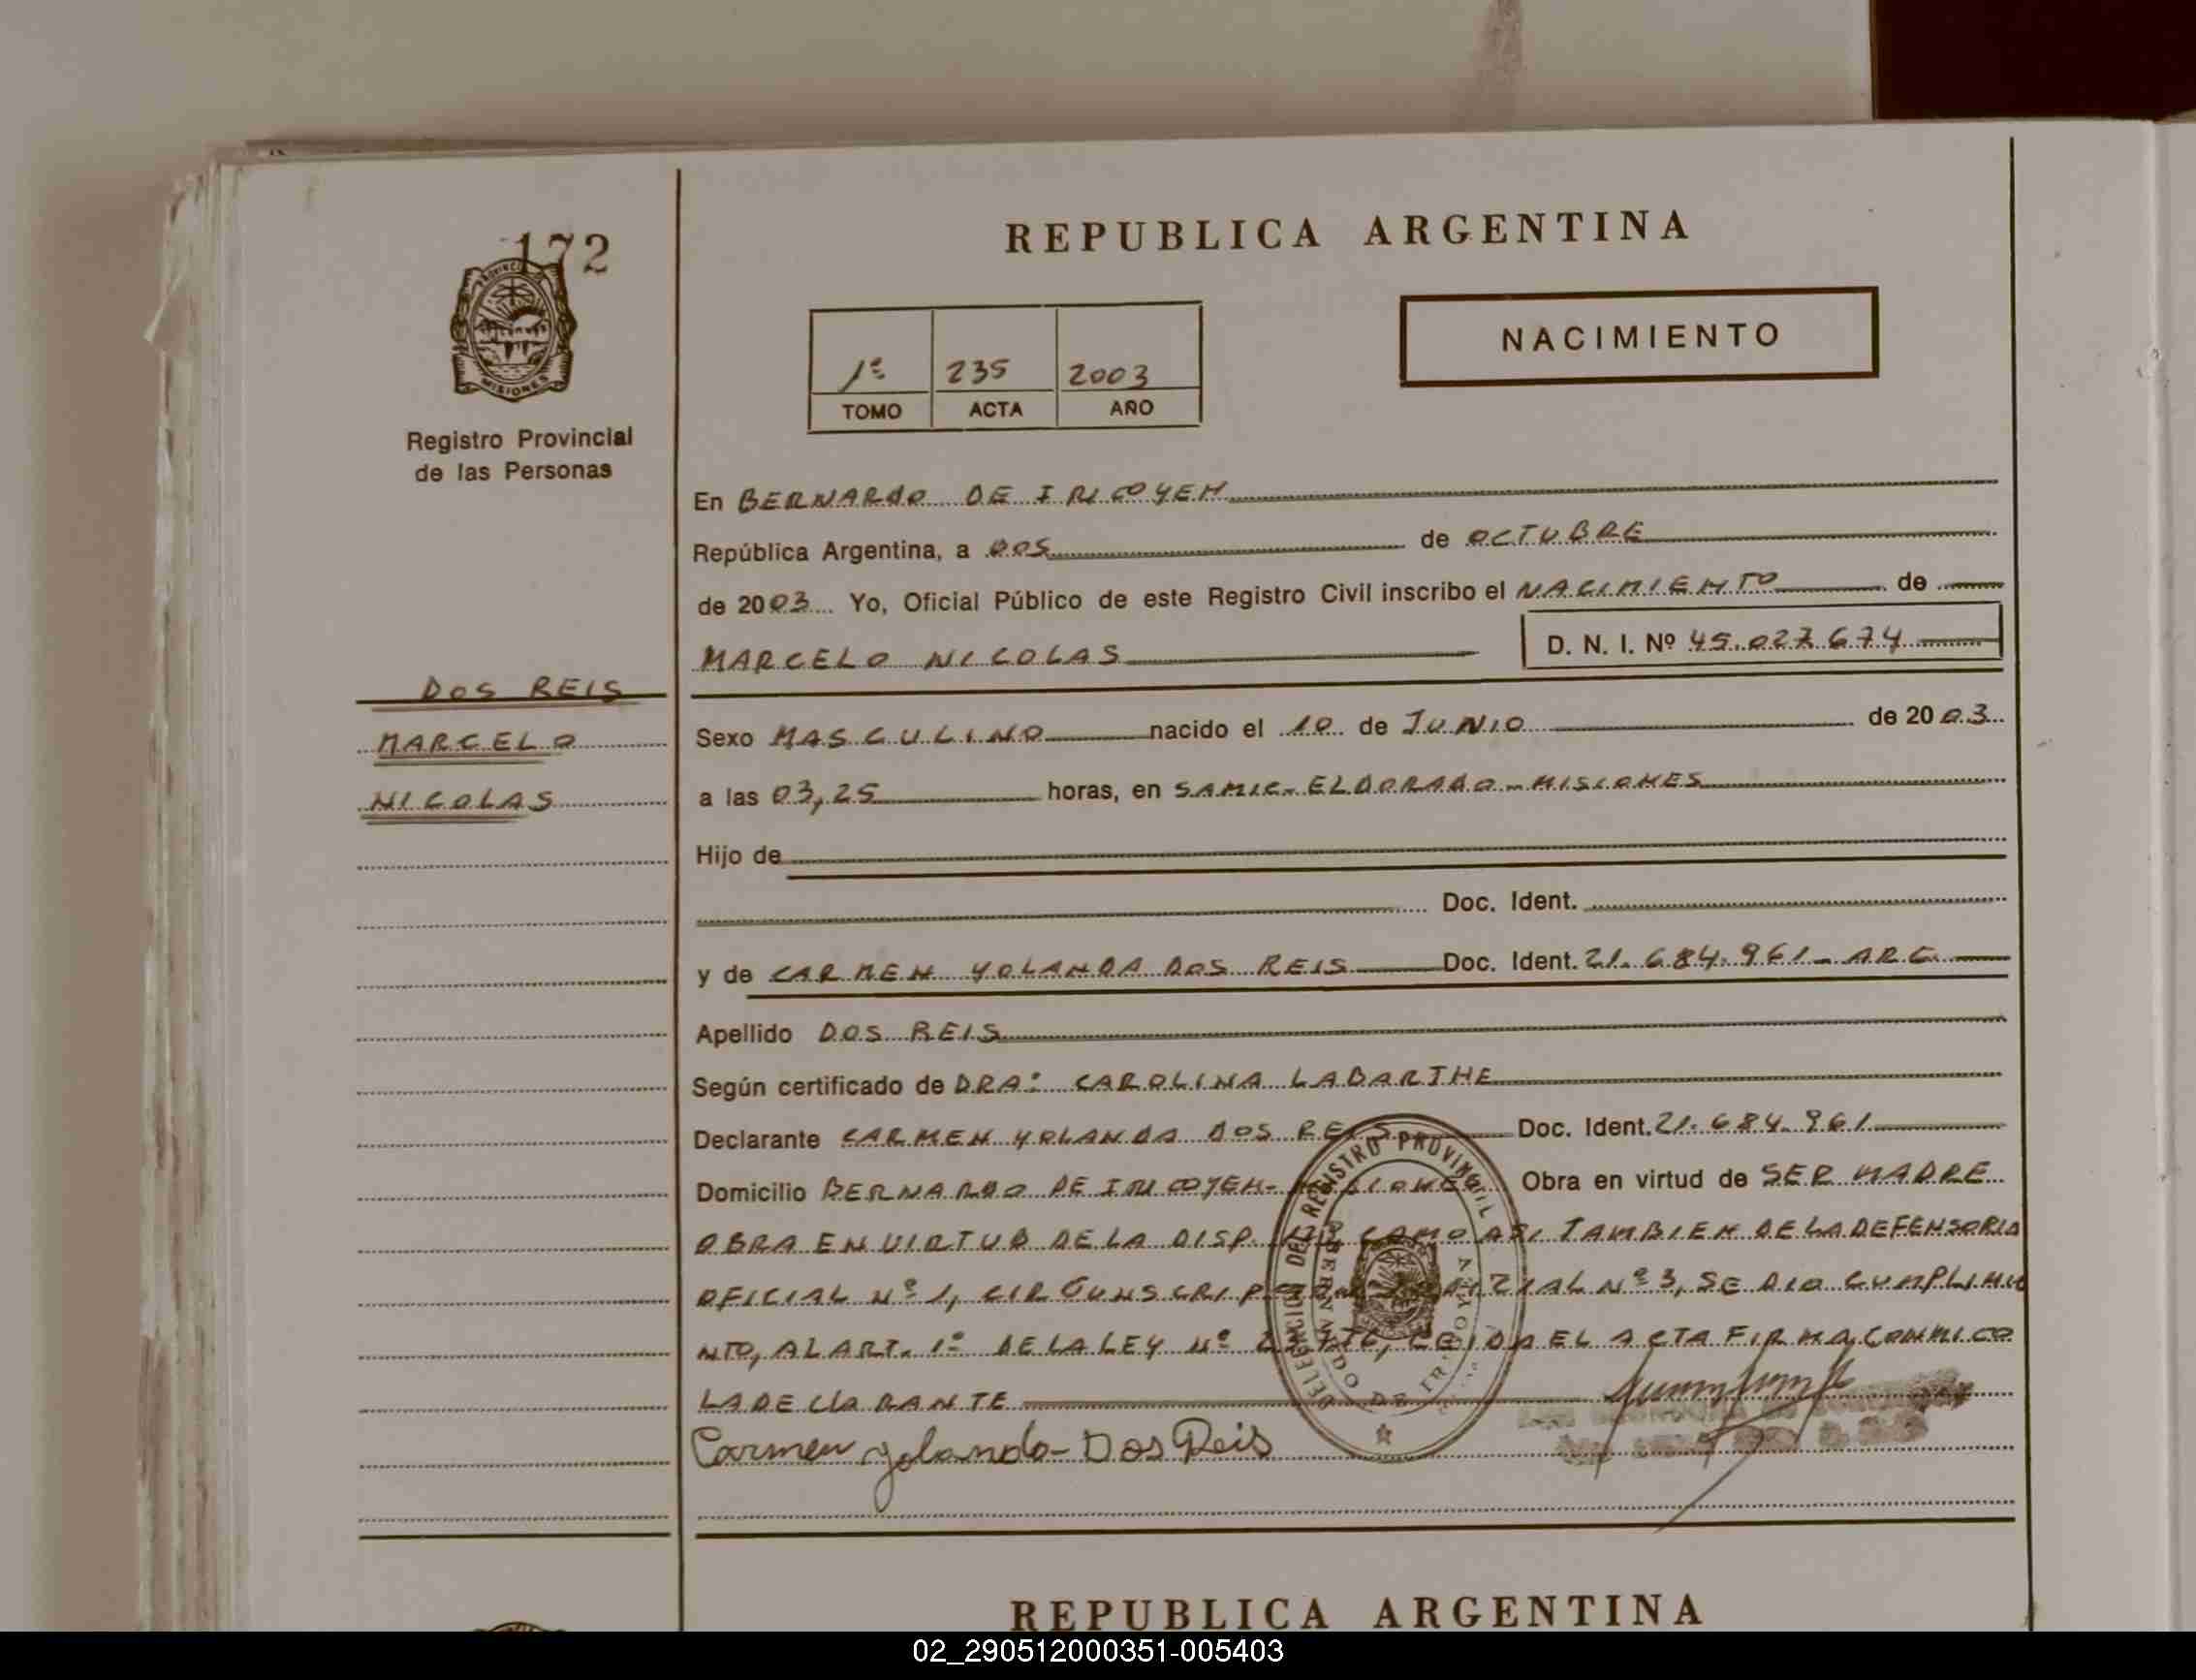 172
PROVINCIA
MISIONES
Registro Provincial
de las Personas
DOS REIS
MARCELO
NICOLAS
REPUBLICA ARGENTINA
1º 235 2003
TOMO ACTA AÑO
NACIMIENTO
En BERNARDO DE IRIGOYEN
República Argentina, a DOS de OCTUBRE
de 2003 Yo, Oficial Público de este Registro Civil inscribo el NACIMIENTO de
MARCELO NICOLAS D. N. I. Nº 45.027.674
Sexo MASCULINO nacido el 10 de JUNIO de 2003
a las 03,25 horas, en SAMIC - ELDORADO - MISIONES
Hijo de
Doc. Ident.
y de CARMEN YOLANDA DOS REIS Doc. Ident. 21.684.961 - ARG.
Apellido DOS REIS
Según certificado de DRA: CAROLINA LABARTHE
Declarante CARMEN YOLANDA DOS REIS Doc. Ident. 21.684.961
Domicilio BERNARDO DE IRIGOYEN - MISIONES Obra en virtud de SER MADRE
OBRA EN VIRTUD DE LA DISP. COMO ASI TAMBIEN DE LA DEFENSORIA
OFICIAL Nº 1, CIRCUNSCRIPCION JUDICIAL Nº 3, SE DIO CUMPLIMIE
NTO, AL ART. 1º DE LA LEY Nº LEIDA EL ACTA FIRMA CONMIGO
LA DECLARANTE
Carmen Yolanda Dos Reis
DELEGACION DEL REGISTRO PROVINCIAL
BERNARDO DE IRIGOYEN
REPUBLICA ARGENTINA
02_290512000351-005403